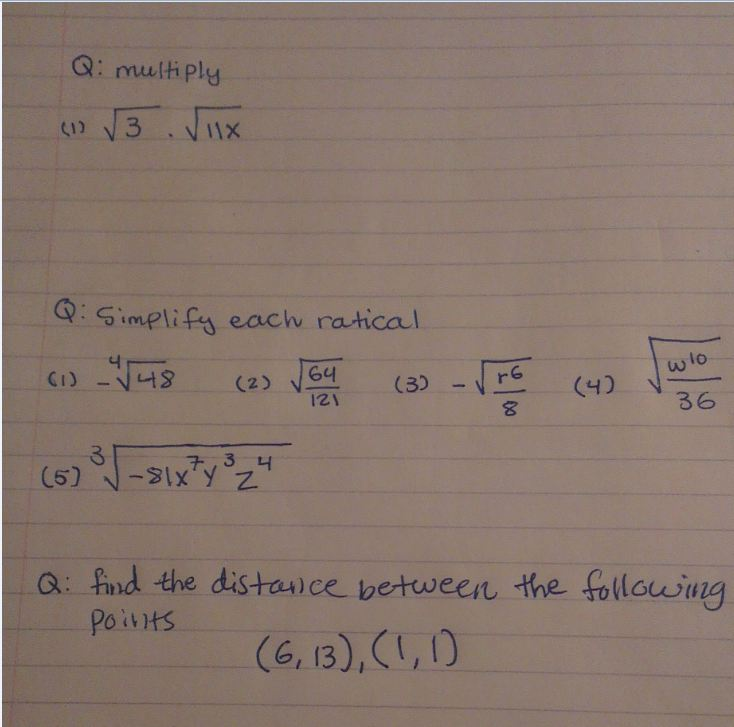 Q: multiply
(1) √3 . √11x
Q: Simplify each ratical
(1) -⁴√48 (2) √(64/121) (3) -√(r⁶/8) (4) √(w¹⁰/36)
(5) ³√(-81x⁷y³z⁴)
Q: find the distance between the following
points
(6, 13), (1, 1)